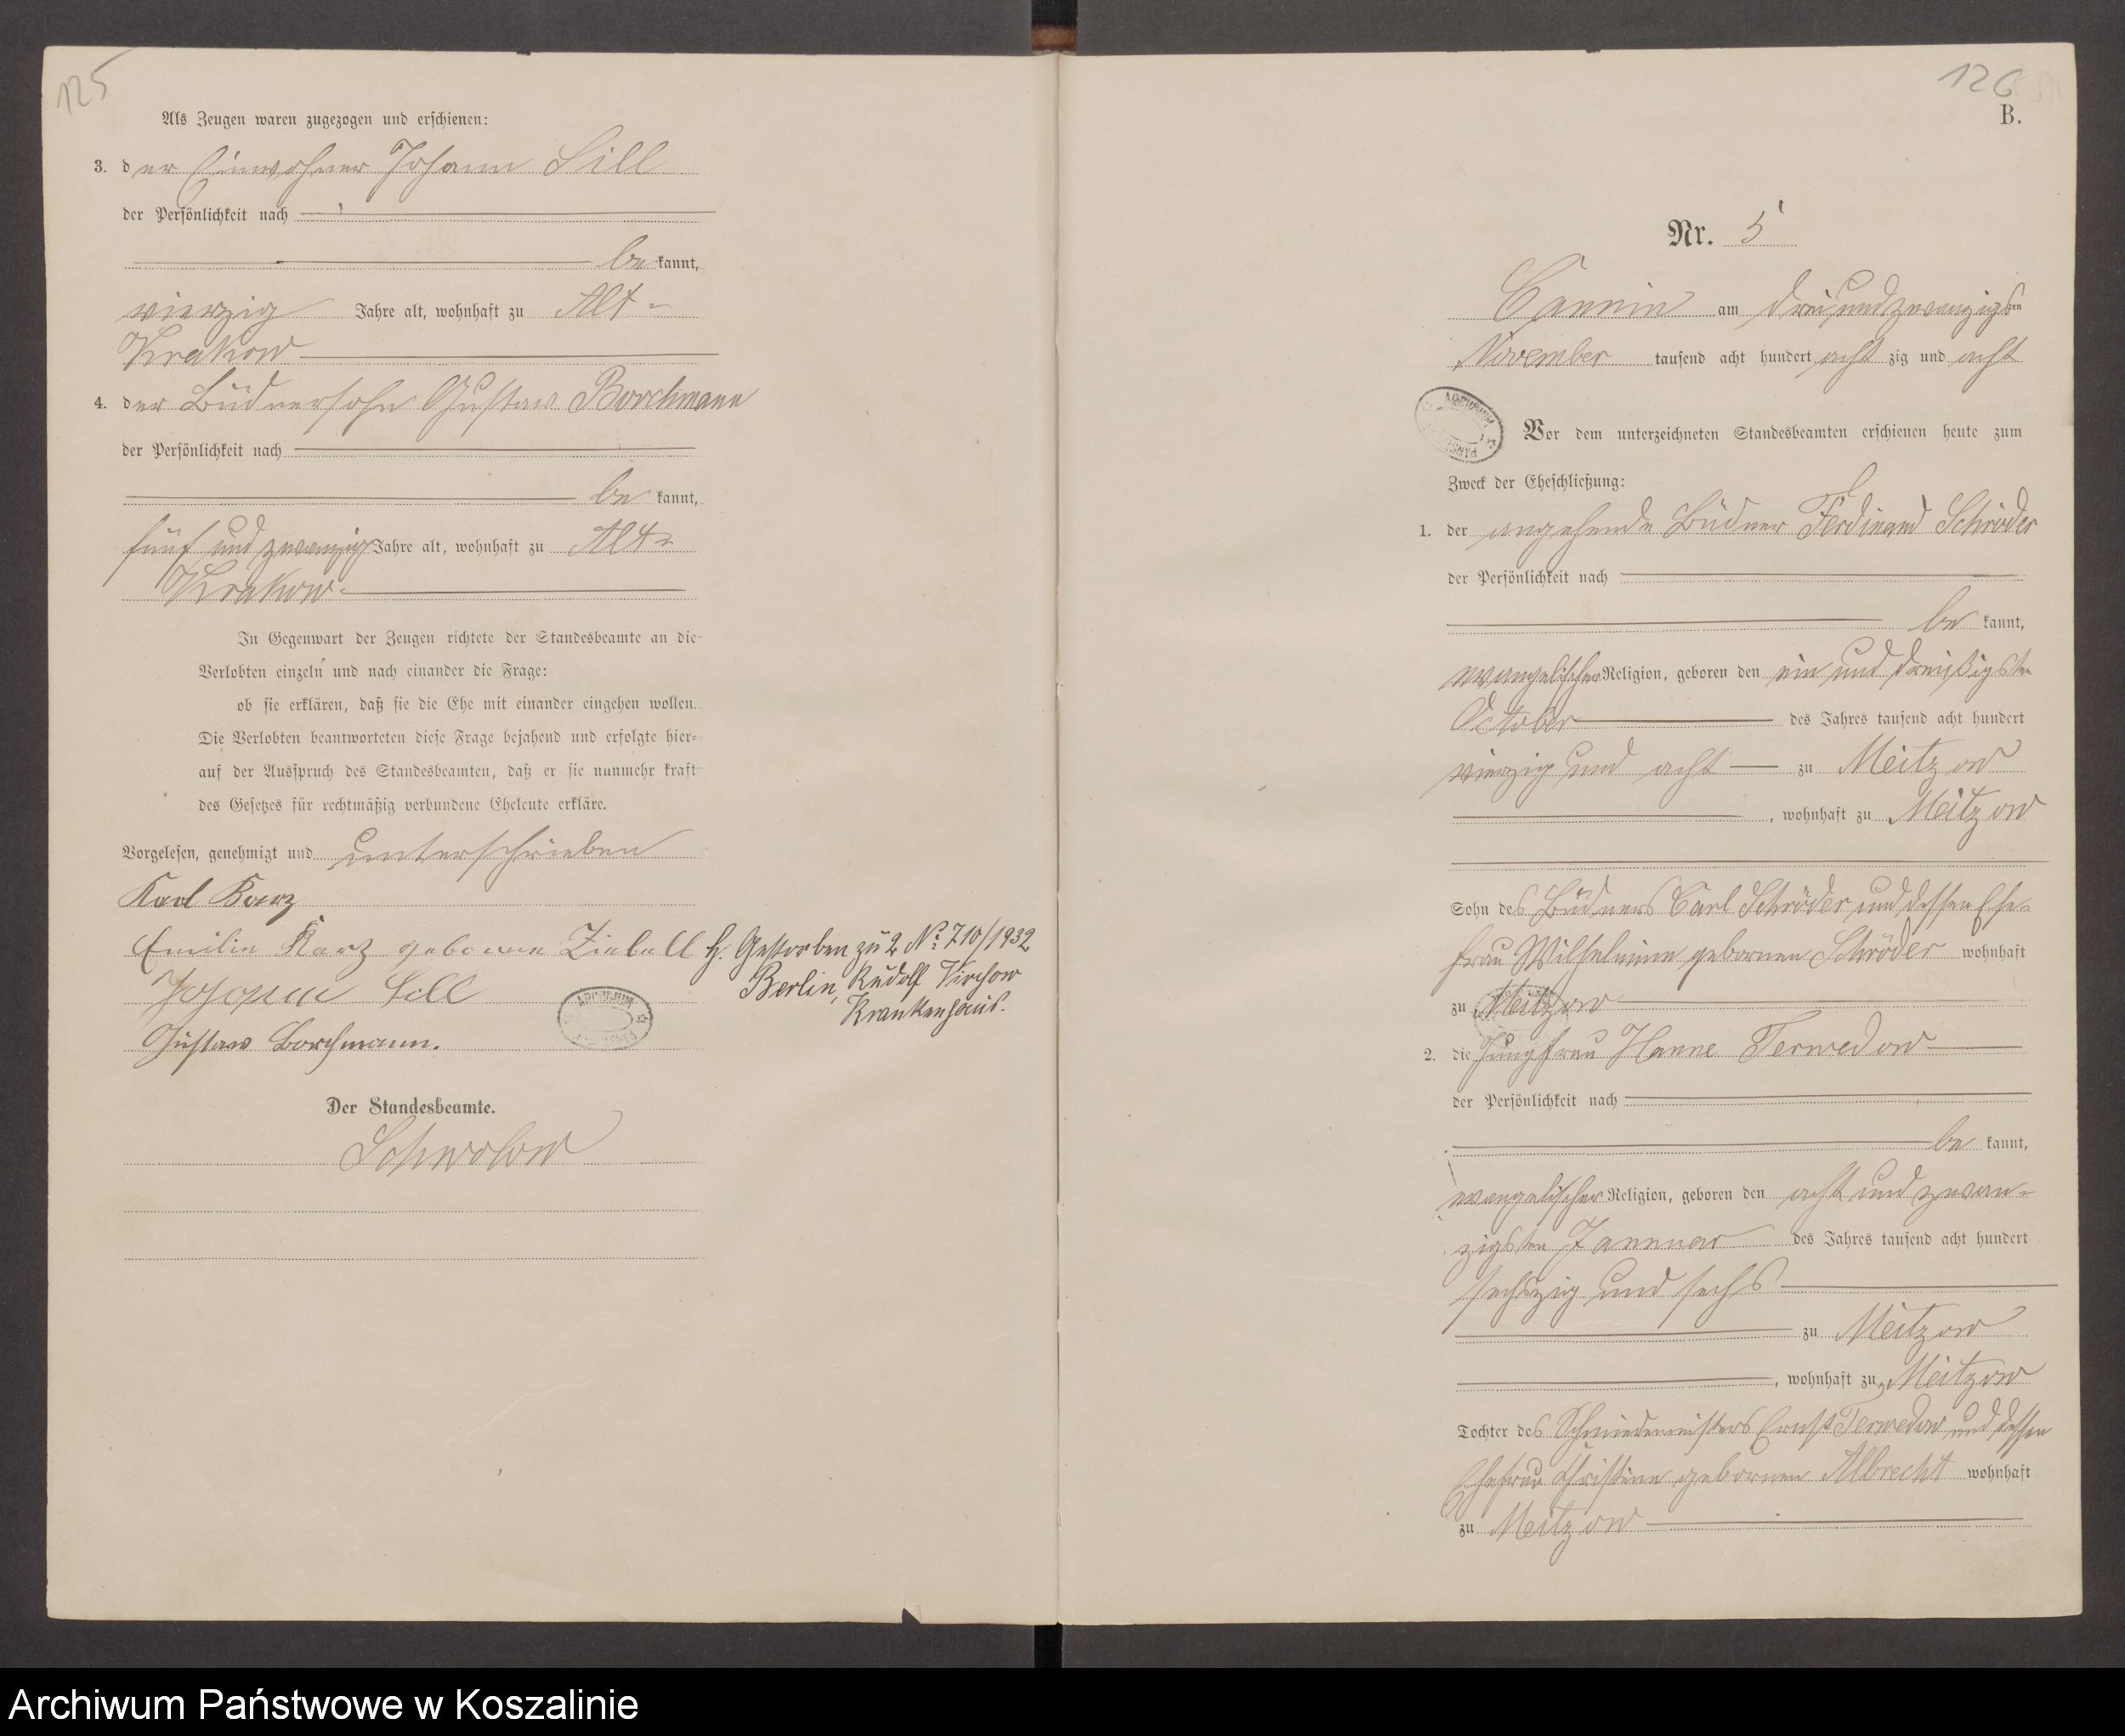 125
Als Zeugen waren zugezogen und erschienen:
3. der Einwohner Johann Sill
der Persönlichkeit nach
be kannt,
vierzig Jahre alt, wohnhaft zu Alt-
Krakow
4. der Büdnersohn Gustav Borchmann
der Persönlichkeit nach
be kannt,
fünf und zwanzig Jahre alt, wohnhaft zu Alt-
Krakow
In Gegenwart der Zeugen richtete der Standesbeamte an die
Verlobten einzeln und nach einander die Frage:
ob sie erklären, daß sie die Ehe mit einander eingehen wollen.
Die Verlobten beantworteten diese Frage bejahend und erfolgte hier-
auf der Ausspruch des Standesbeamten, daß er sie nunmehr kraft
des Gesetzes für rechtmäßig verbundene Eheleute erkläre.
Vorgelesen, genehmigt und unterschrieben
Karl Karz
Emilie Karz geborene Zielell
H. Gestorben zu 2 No 710/1932
Berlin, Rudolf Virchow
Krankenhaus.
Johann Sill
Gustav Borchmann.
Der Standesbeamte.
126
B.
Nr. 5
Cannin am drei und zwanzigsten
November tausend acht hundert acht zig und acht
Vor dem unterzeichneten Standesbeamten erschienen heute zum
Zweck der Eheschließung:
1. der angehende Büdner Ferdinand Schröder
der Persönlichkeit nach
be kannt,
evangelischer Religion, geboren den ein und dreißigsten
October des Jahres tausend acht hundert
vierzig und acht zu Meitzow
, wohnhaft zu Meitzow
Sohn des Büdners Carl Schröder und dessen Ehe-
frau Wilhelmine gebornen Schröder wohnhaft
zu Meitzow
2. die Jungfrau Hanne Terwedow
der Persönlichkeit nach
be kannt,
evangelischer Religion, geboren den acht und zwan-
zigsten Januar des Jahres tausend acht hundert
sechszig und sechs
zu Meitzow
, wohnhaft zu Meitzow
Tochter des Schmiedemeisters Ernst Terwedow und dessen
Ehefrau Christine gebornen Albrecht wohnhaft
zu Meitzow
Archiwum Państwowe w Koszalinie